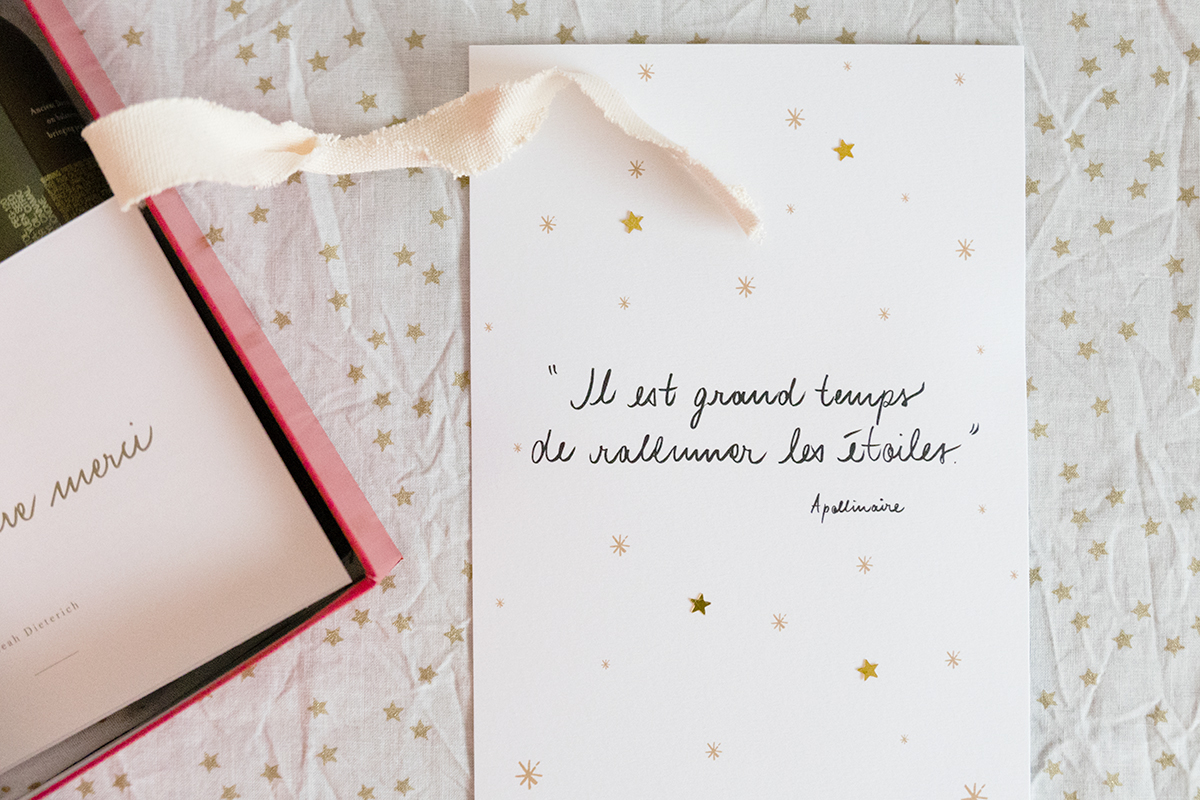 Ancien
merci
Dieterich
" Il est grand temps
de rallumer les étoiles."
Apollinaire